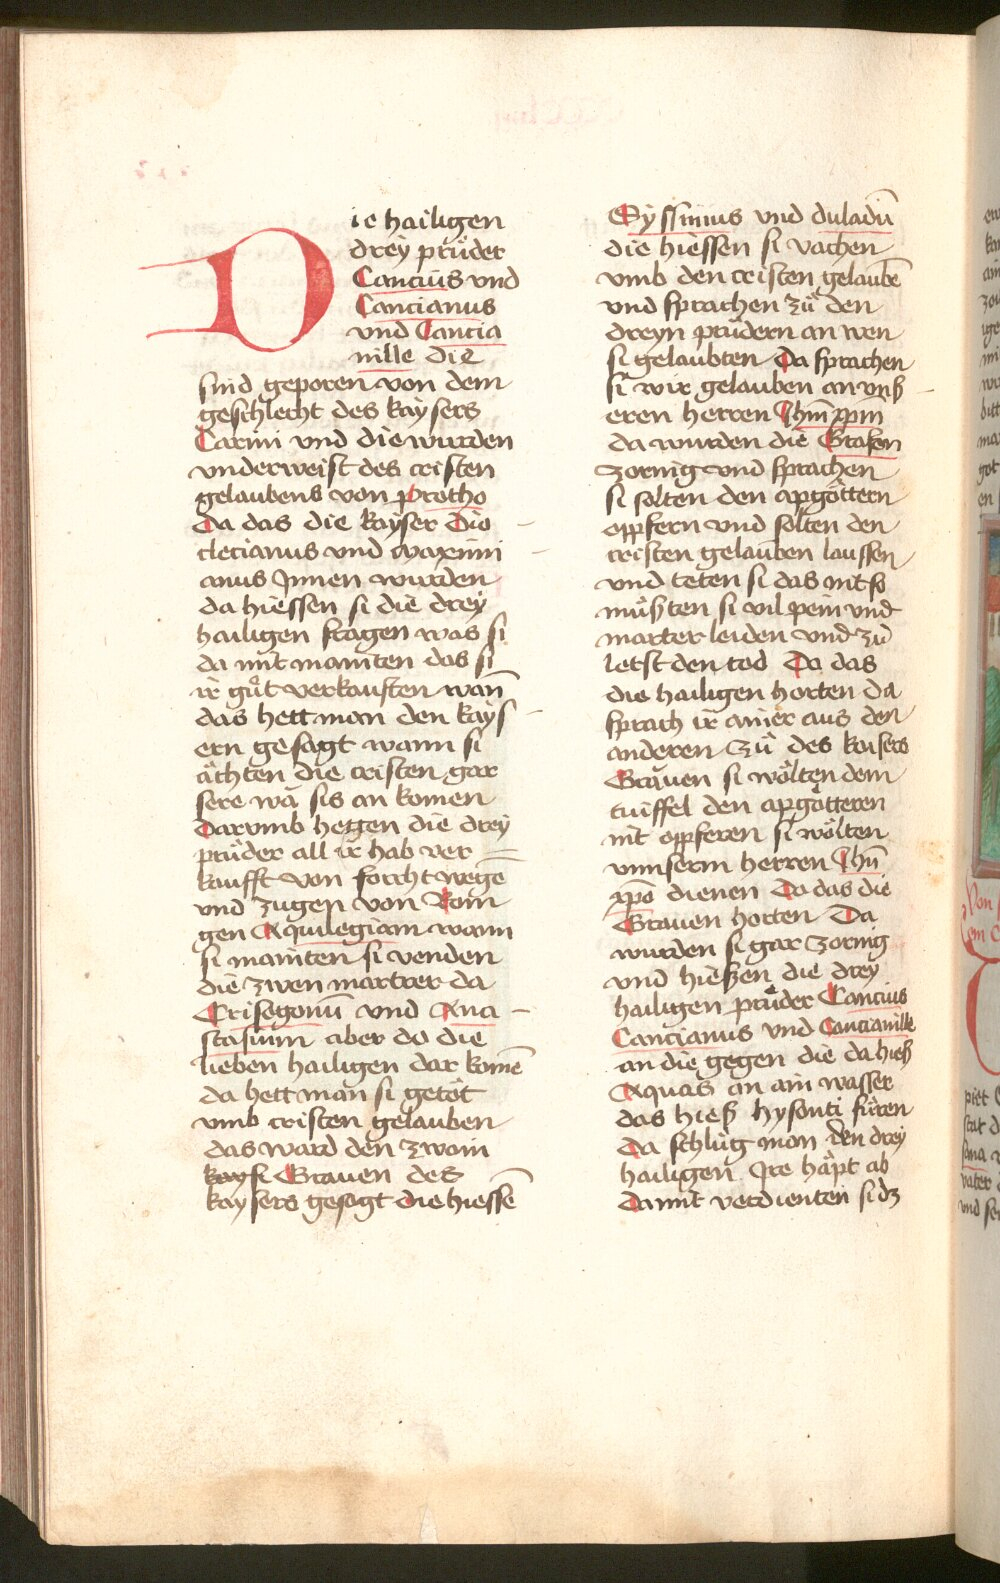 Die hailigen
drey prüder
Cancius vnd
Cancianus
vnd Cancia
nille die
sind geporen von dem
geschlecht des kaysers
Carini vnd die wurden
vnderweist des cristen
gelaubens von protho
Da das die kayser Dio
cletianus vnd Maximi
anus Jnnen wurden
da hiessen si die drey
hailigen fragen was si
da mit mainten das si
ir gůt verkauften wann̄
das hett man den kays
ern gesagt wann si
ächten die cristen gar
sere wa sis an komen
Darvmb hetten die drey
prüder all ir hab ver
kaufft von forcht wegē
vnd zugen von Rom
gen Aquilegiam wann
si mainten si venden
die zwen martrer da
Crisogonū vnd Ana
stasium aber do die
lieben hailigen dar komē
da hett man si getöt
vmb cristen gelauben
das ward den zwain
kaysi Grauen des
kaysers gesagt die hiessē
Syssinius vnd duladū
die hiessen si vachen
vmb den cristen gelaubē
vnd sprachen zů den
dreyn prüdern an wen
si gelaubten Da sprachen
si wir gelauben an vnß
eren herren Jhm̄ xpm
da wurden die Grafen
zornig vnd sprachen
si solten den apgöttern
opfern vnd solten den
cristen gelauben laussen
vnd teten si das nit so
müßten si vil pein vnd
marter leiden vnd zů
letst den tod Da das
die hailigen horten da
sprach ir ainer aus den
anderen zů des kaisers
Grauen si wölten dem
tüffel den apgötteren
nit opferen si wölten
vnnserm herren Jhū
xpō dienen Do das die
Grauen horten Da
wurden si gar zornig
vnd hieszen die drey
hailigen prüder Cancius
Cancianus vnd Cancianille
an die gegen die da hieß
Aquas an ain wasser
das hieß hysonti füren
Da schlůg man den drey
hailigen Jre häpt ab
Damit verdienten si dz